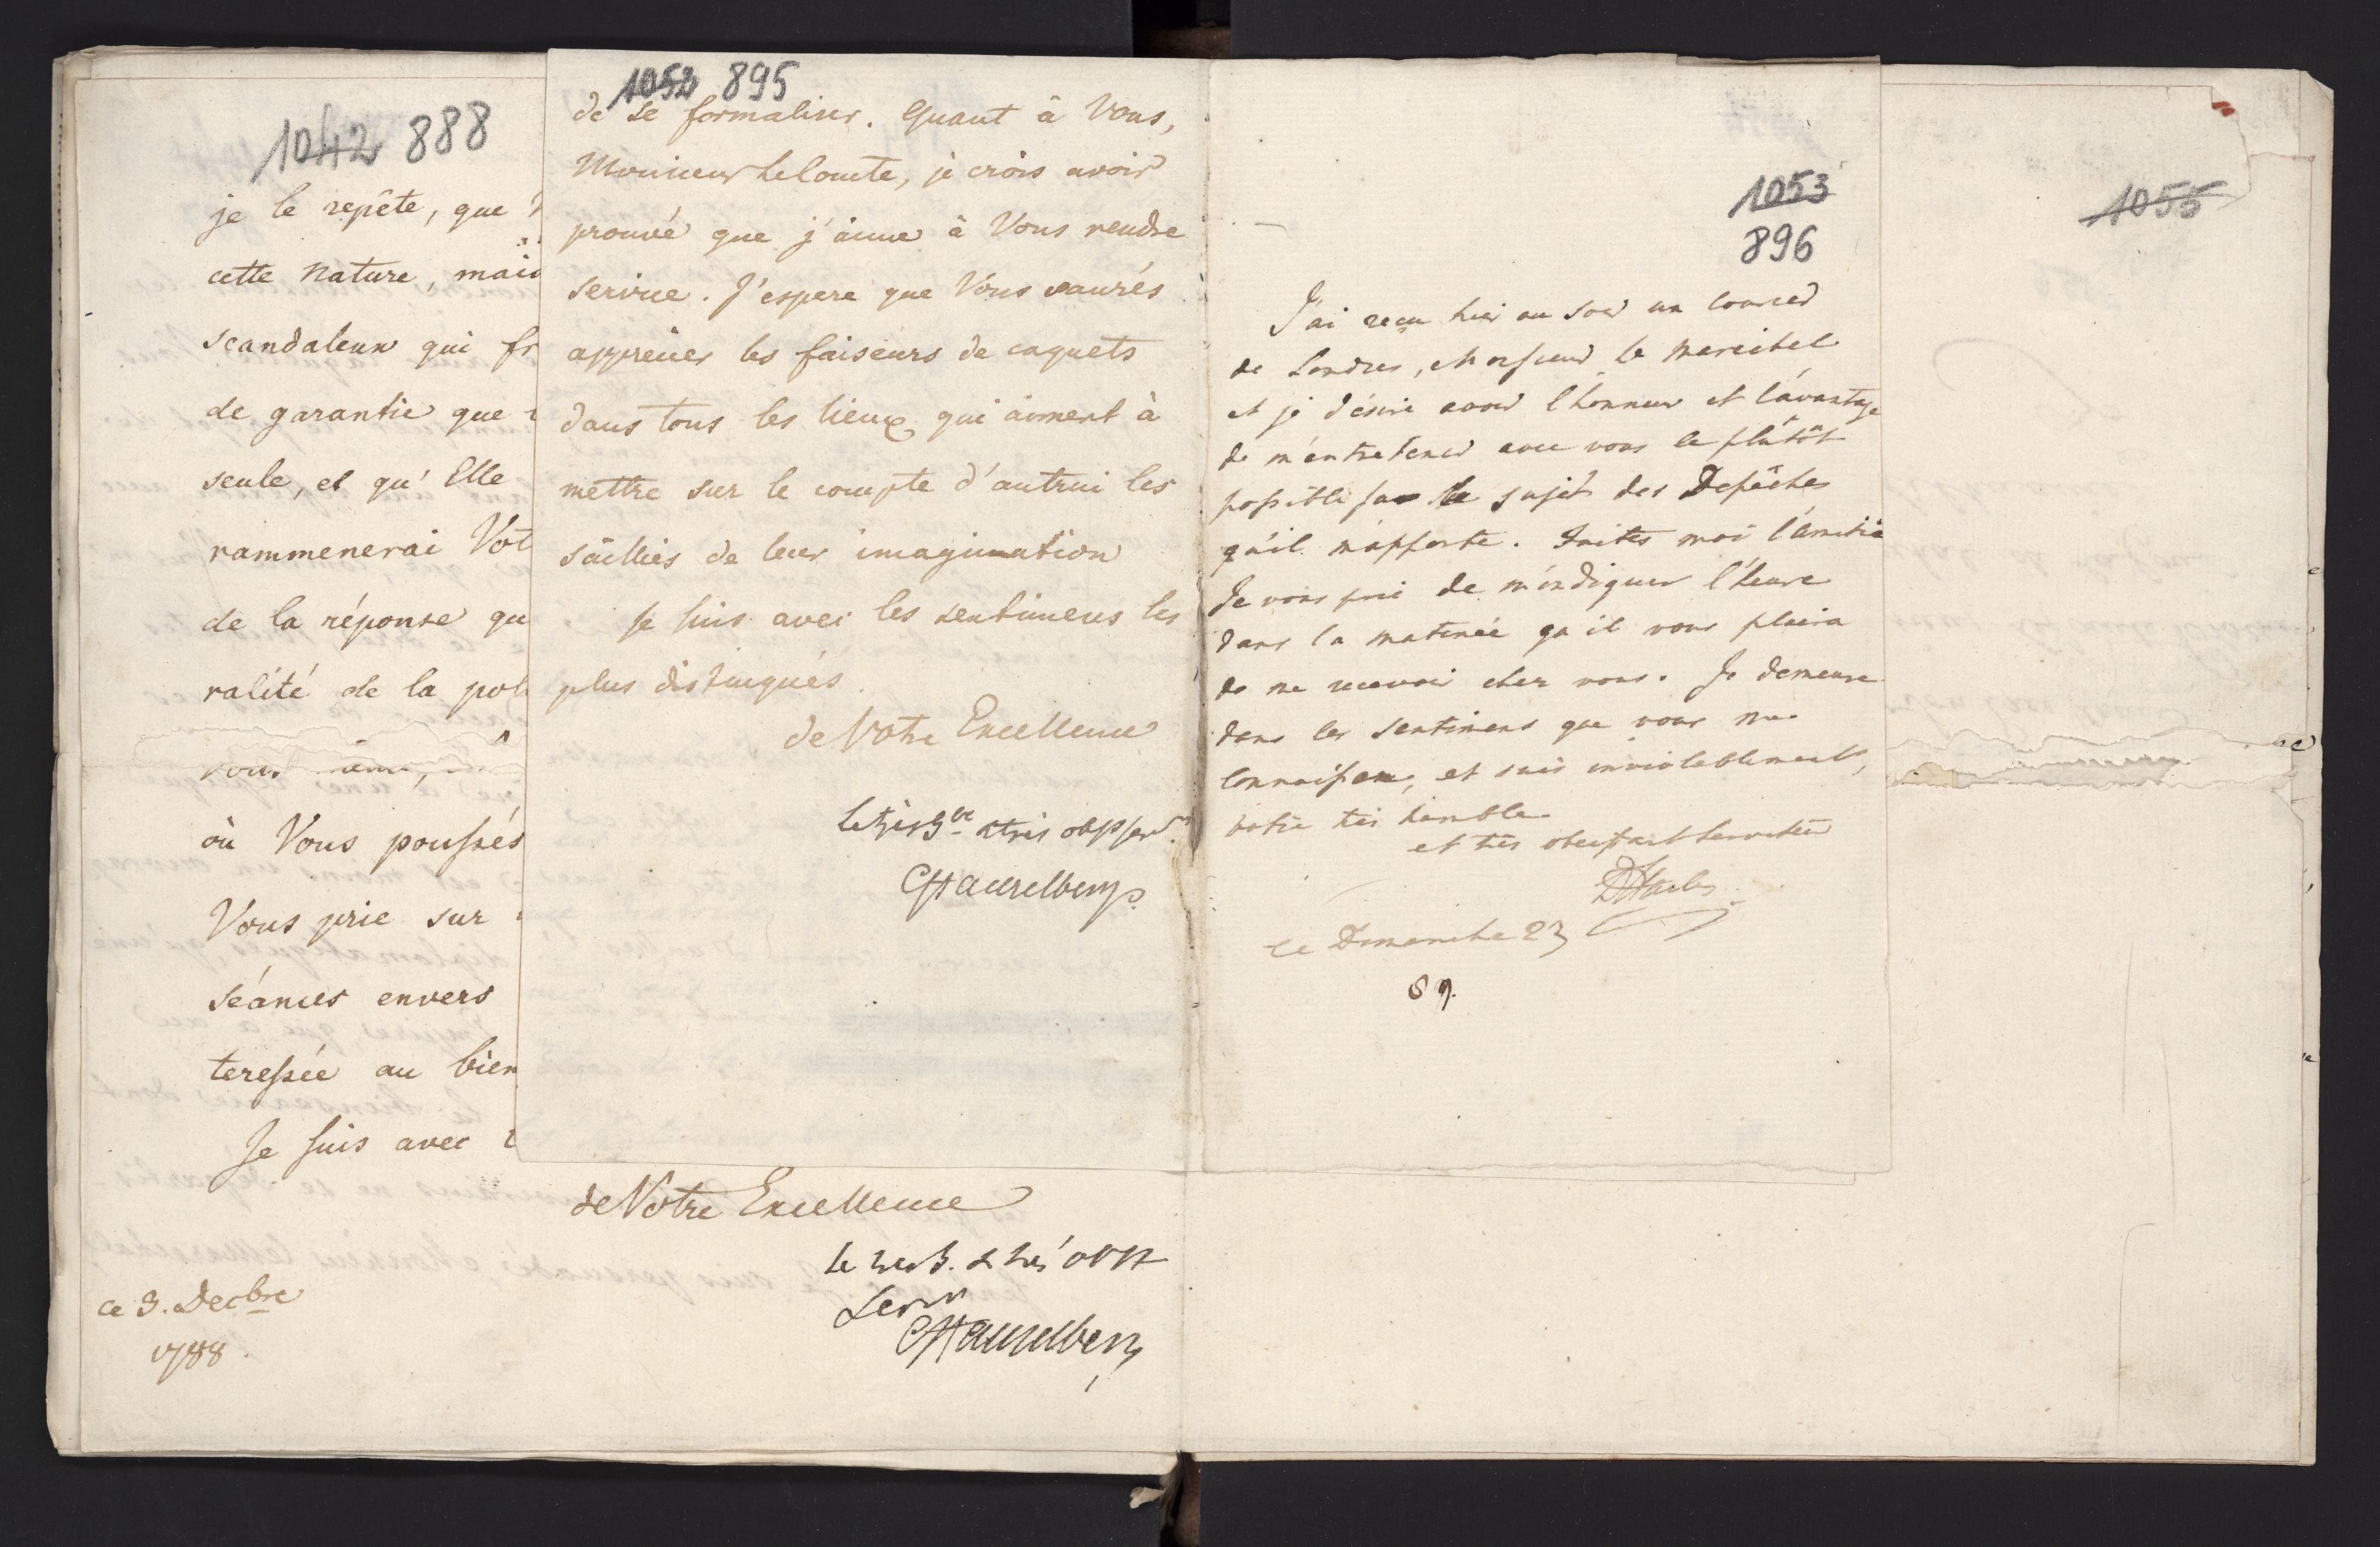 1042 888
je le repête, que
cette nature, mais
scandaleux qui fr
de garantie que
seule, et qu'Elle
rammenerai Vot
de la réponse qu
ralité de la pol
vous
où Vous poussés
Vous prie sur
séances envers
teressée au bien
Je suis avec
de Votre Excellence
le tres h. & trés obst
Serv
CHauzelberg
ce 3. Decbre
1788.
1052 895
de se formaliser. Quant à Vous,
Monsieur le Comte, je crois avoir
prouvé que j'aime à Vous rendre
service. J'espere que Vous saurés
apprécier les faiseurs de caquets
dans tous les lieux qui aiment à
mettre sur le compte d'autrui les
sailliés de leur imagination
Je suis avec les sentimens les
plus distingués
de Votre Excellence
le très hble et très obst serv.
CHauzelberg
1053
896
J'ai reçu hier au soir un Courier
de Londres, Monsieur le Marechel
et je désire avoir l'honneur et l'avantage
de m'entretenir avec vous le plûtôt
possible sur le sujet des Depêches
qu'il m'apporte. Faites moi l'amitié
Je vous prie de m'indiquer l'heure
dans la matinée qu'il vous plaira
de me recevoir chez vous. Je demeure
dans les sentimens que vous me
connaissez, et suis inviolablement,
votre très humble
et très obeissant serviteur
DHailes
ce Dimanche 23
89.
1055